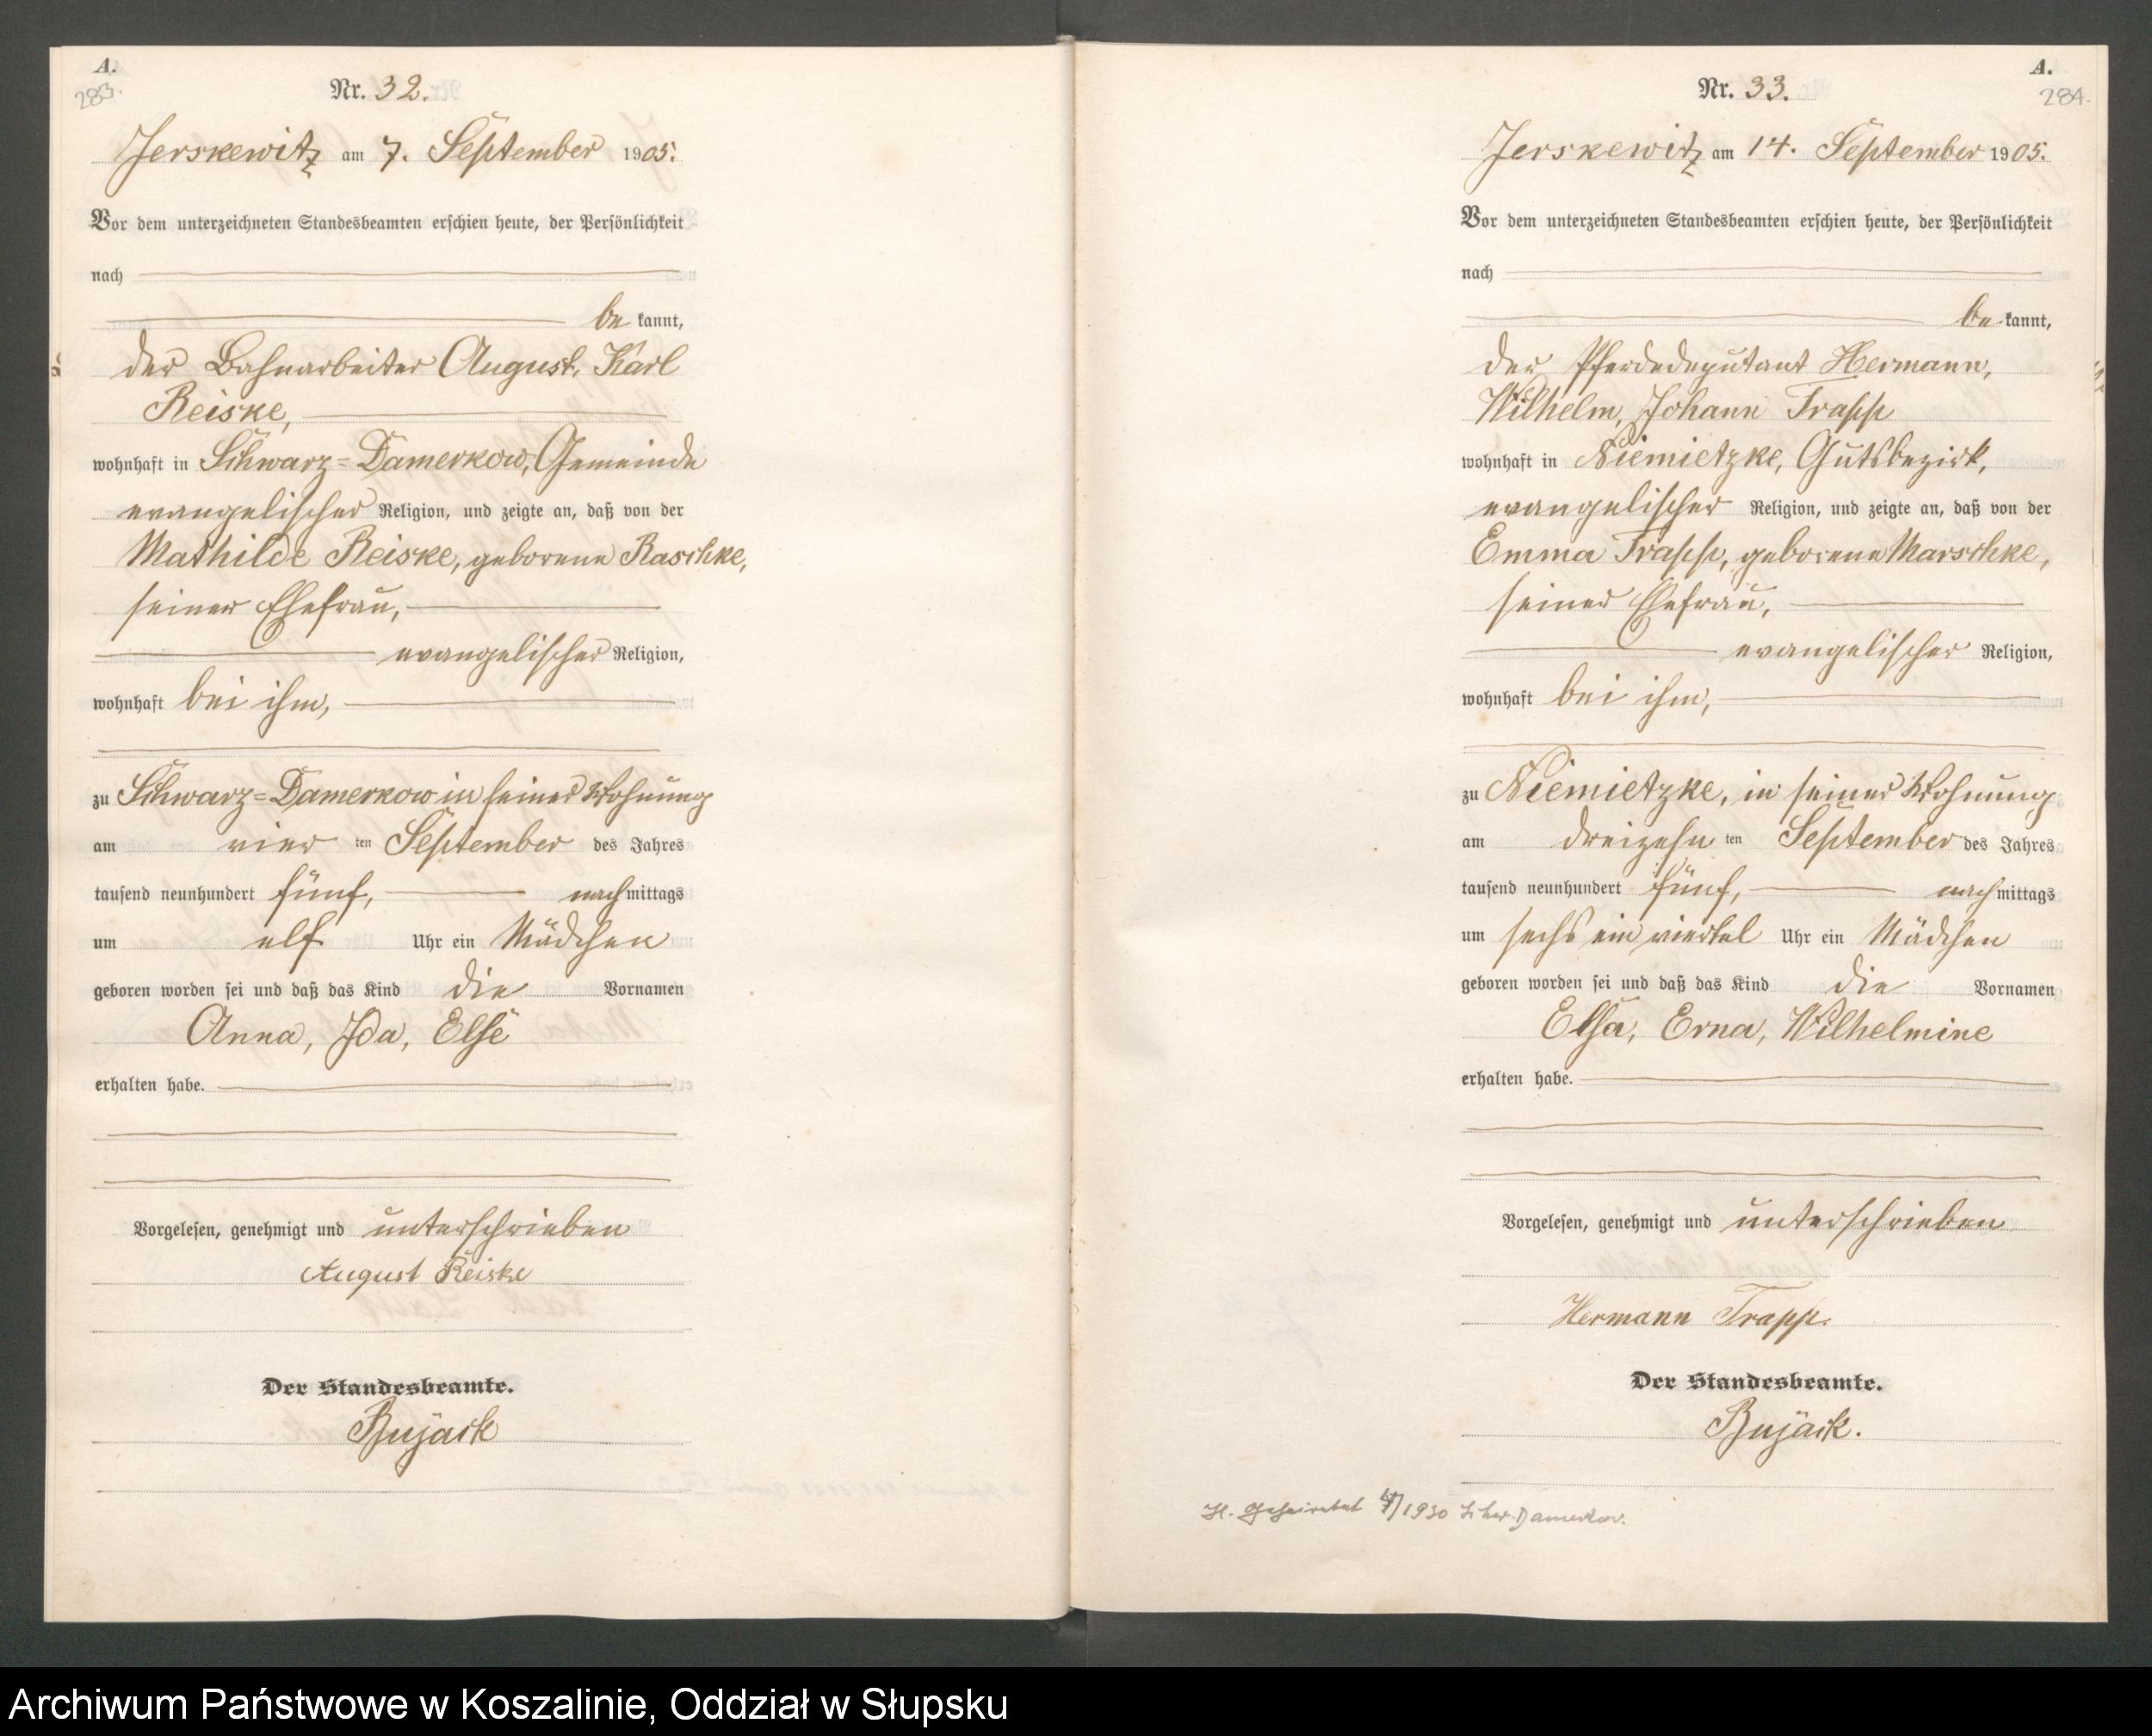 A.
283.
Nr. 32.
Jerskewitz am 7. September 1905.
Vor dem unterzeichneten Standesbeamten erschien heute, der Persönlichkeit
nach
be kannt,
der Bahnarbeiter August, Karl
Reiske,
wohnhaft in Schwarz=Damerkow, Gemeinde
evangelischer Religion, und zeigte an, daß von der
Mathilde Reiske, geborene Raschke,
seiner Ehefrau,
evangelischer Religion,
wohnhaft bei ihm,
zu Schwarz=Damerkow in seiner Wohnung
am vier ten September des Jahres
tausend neunhundert fünf, nach mittags
um elf Uhr ein Mädchen
geboren worden sei und daß das Kind die Vornamen
Anna, Ida, Else
erhalten habe.
Vorgelesen, genehmigt und unterschrieben
August Reiske
Der Standesbeamte.
Bujack
A.
284.
Nr. 33.
Jerskewitz am 14. September 1905.
Vor dem unterzeichneten Standesbeamten erschien heute, der Persönlichkeit
nach
be kannt,
der Pferdedeputant Hermann,
Wilhelm, Johann Trapp
wohnhaft in Niemietzke, Gutsbezirk,
evangelischer Religion, und zeigte an, daß von der
Emma Trapp, geborene Marschke,
seiner Ehefrau,
evangelischer Religion,
wohnhaft bei ihm,
zu Niemietzke, in seiner Wohnung
am dreizehn ten September des Jahres
tausend neunhundert fünf, nach mittags
um sechs ein viertel Uhr ein Mädchen
geboren worden sei und daß das Kind die Vornamen
Elsa, Erna, Wilhelmine
erhalten habe.
Vorgelesen, genehmigt und unterschrieben
Hermann Trapp.
Der Standesbeamte.
Bujack.
geheiratet /1930 Schw. Damerkow.
Archiwum Państwowe w Koszalinie, Oddział w Słupsku